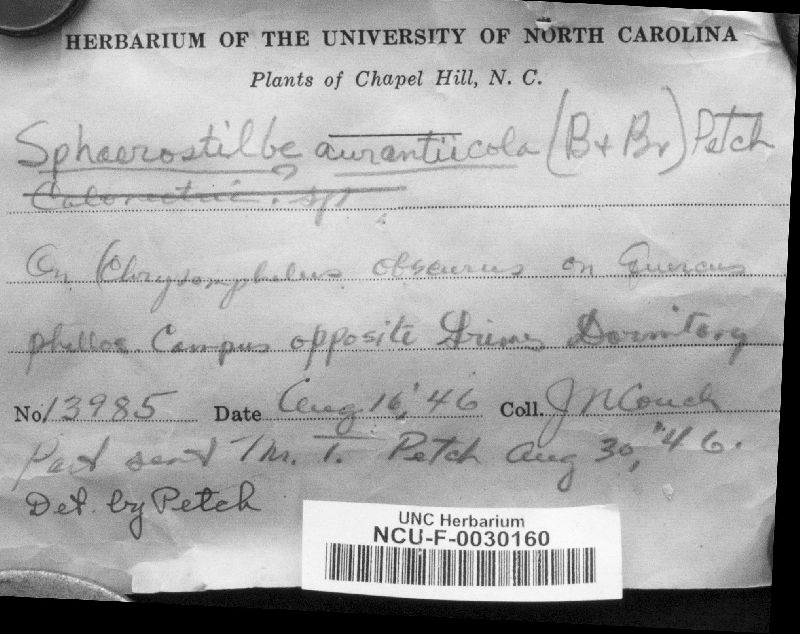 HERBARIUM OF THE UNIVERSITY OF NORTH CAROLINA
Plants of Chapel Hill, N. C.
Sphaerostilbe aurantiicola (B+Br) Petch
Calonectria? sp.
On Chrysomphalus obscurus on Quercus
phellos Campus opposite Grimes Dormitory
No. 13985 Date Aug 16, '46 Coll. J N Couch
Part sent Mr. T. Petch Aug 30, '46.
Det. by Petch
UNC Herbarium
NCU-F-0030160